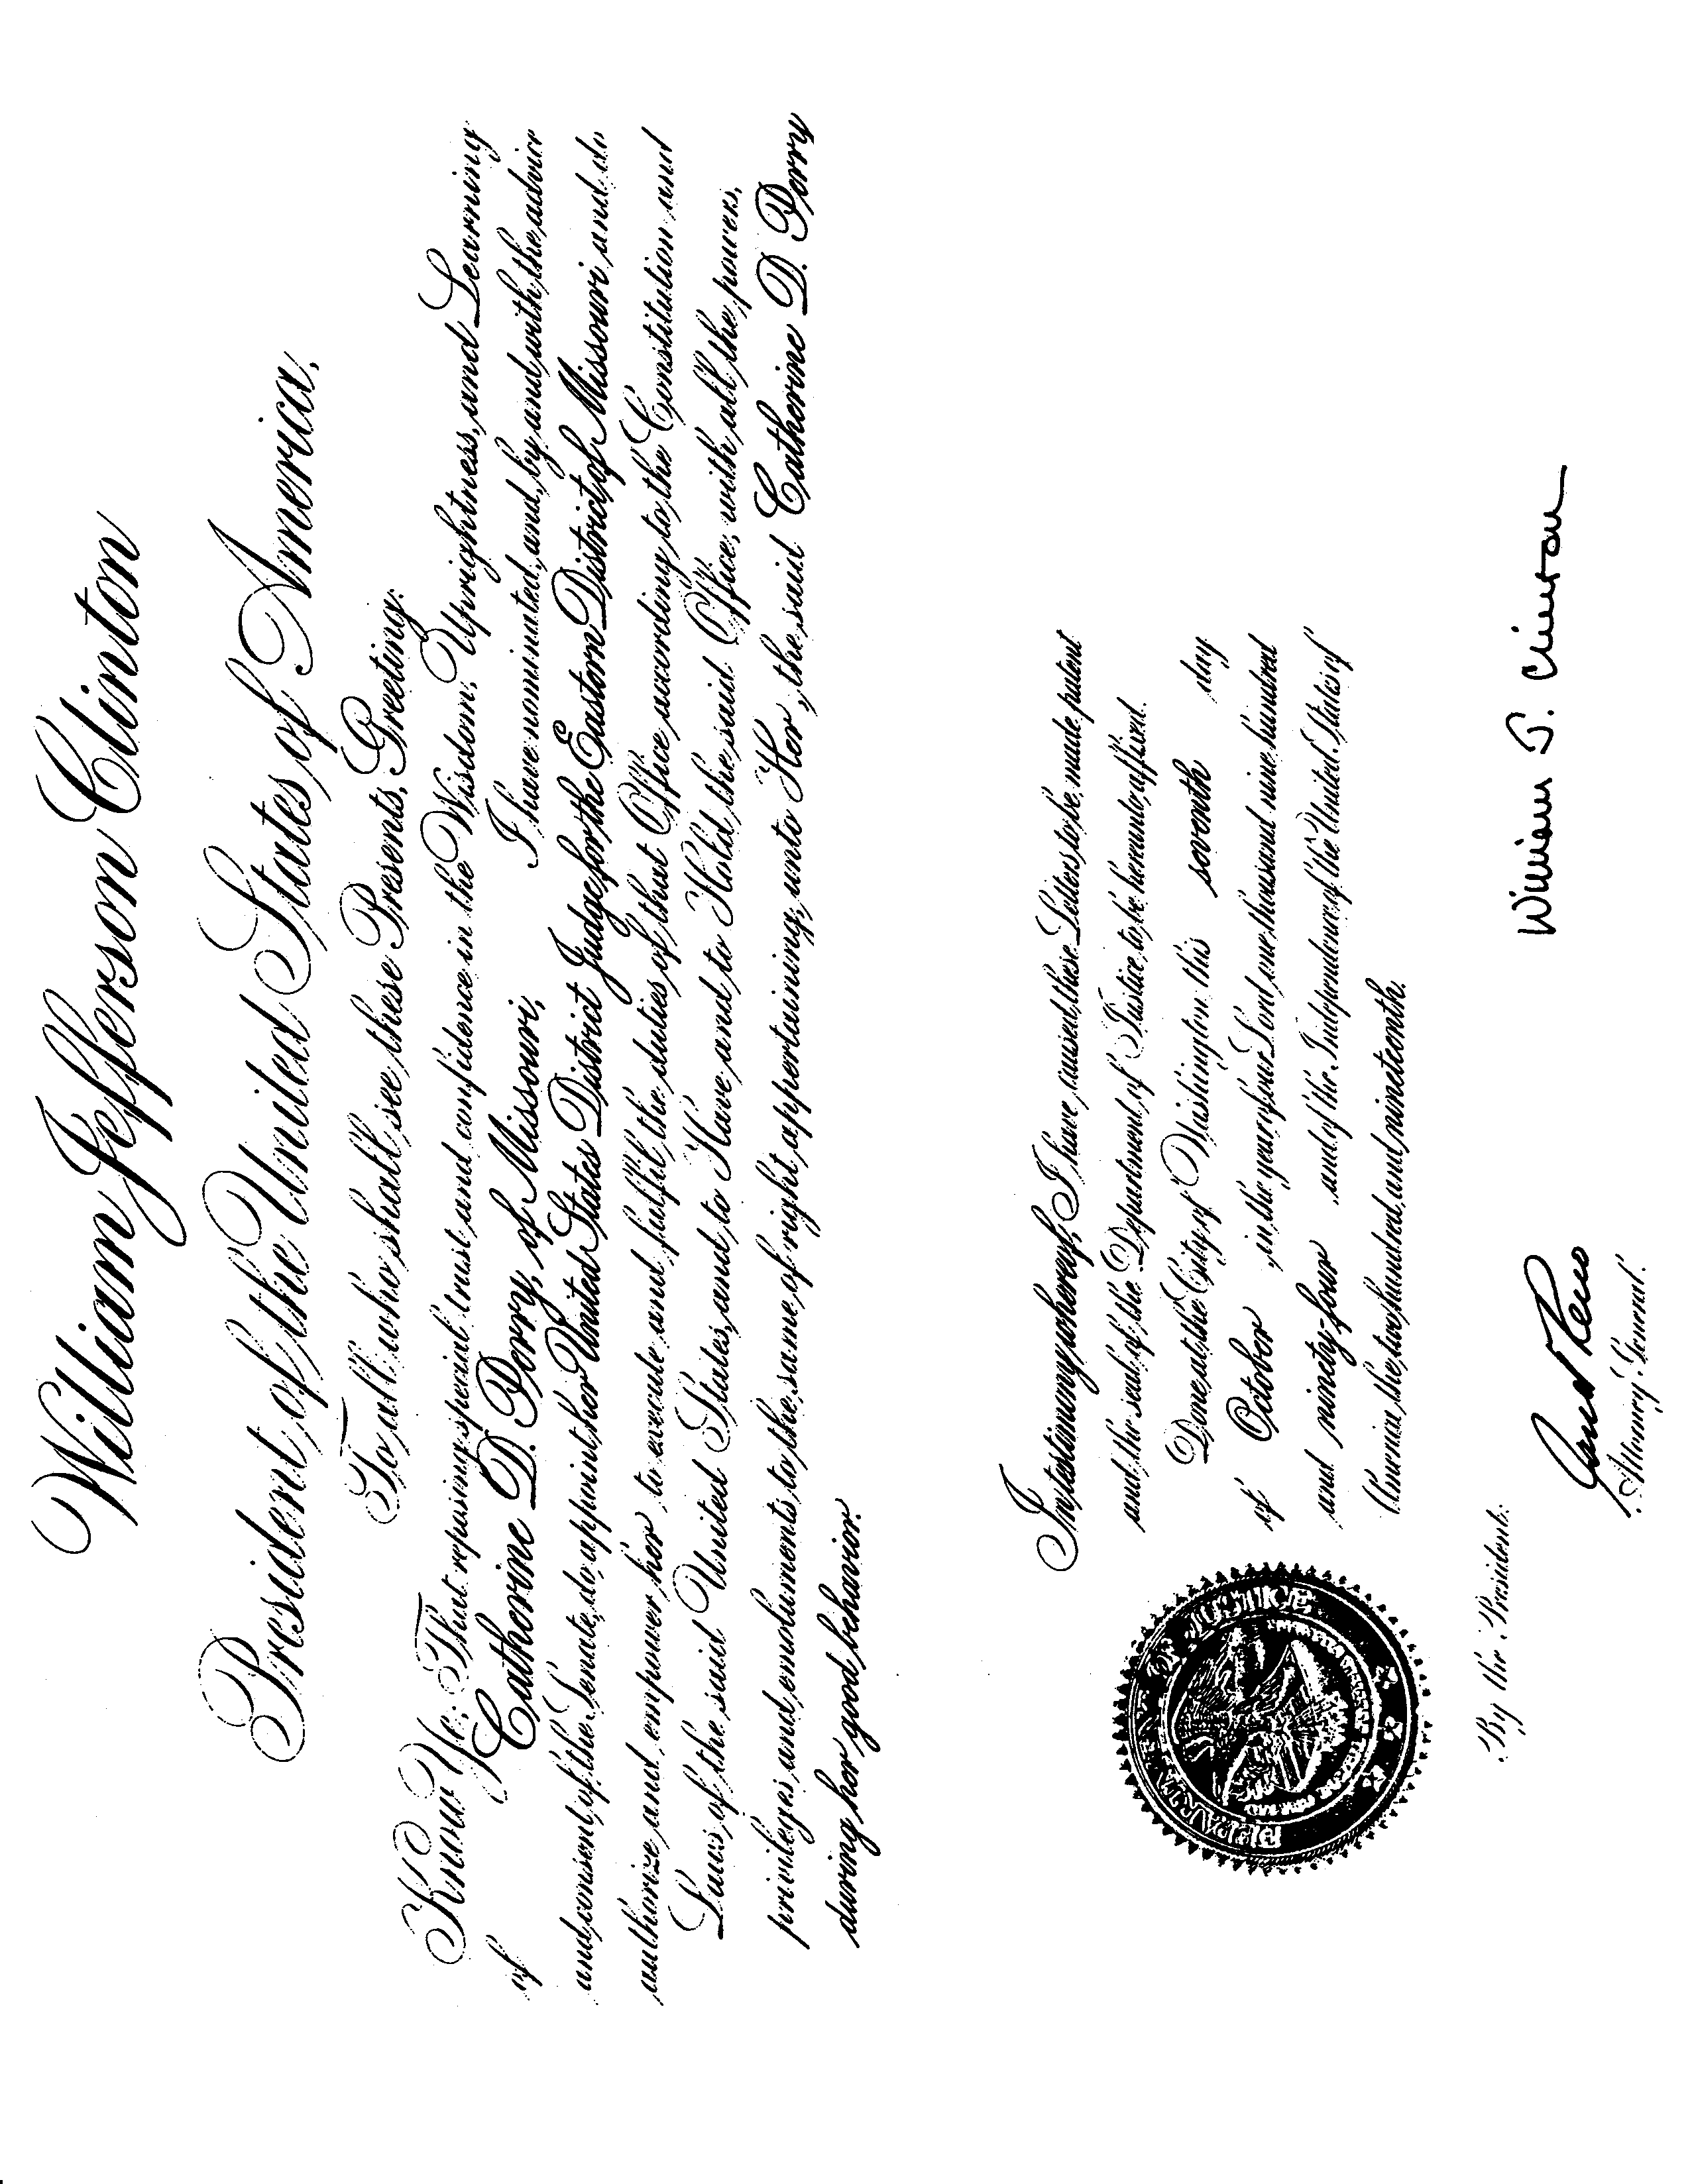 William Jefferson Clinton
President of the United States of America,
To all who shall see these Presents, Greeting:
Know Ye: That reposing special trust and confidence in the Wisdom, Uprightness, and Learning
of Catherine D. Perry, of Missouri, I have nominated, and, by and with the advice
and consent of the Senate, do appoint her United States District Judge for the Eastern District of Missouri and do
authorize and empower her to execute and fulfil the duties of that Office according to the Constitution and
Laws of the said United States, and to Have and to Hold the said Office, with all the powers,
privileges and emoluments to the same of right appertaining, unto Her, the said Catherine D. Perry
during her good behavior.
In testimony whereof, I have caused these Letters to be made patent
and the seal of the Department of Justice to be hereunto affixed.
Done at the City of Washington this seventh day
of October in the year of our Lord one thousand nine hundred
and ninety-four and of the Independence of the United States of
America the two hundred and nineteenth.
DEPARTMENT OF JUSTICE
William J. Clinton
By the President:
Janet Reno
Attorney General.